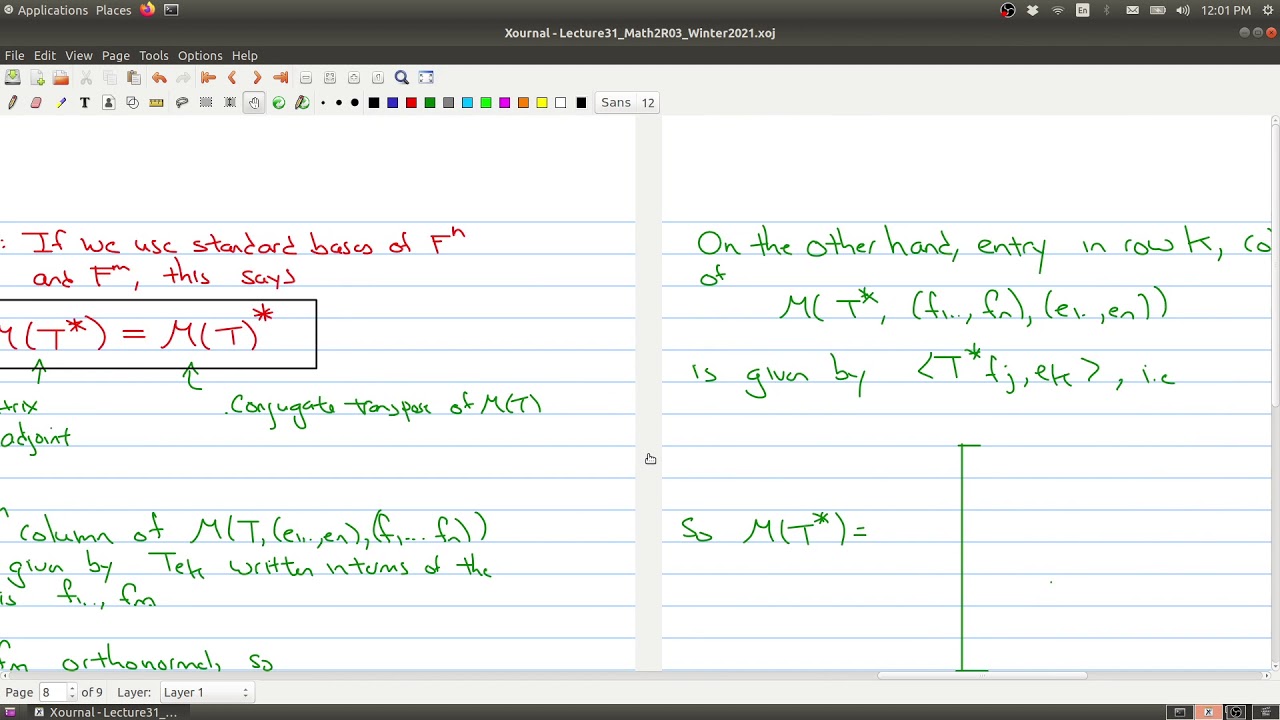 Applications Places En 12:01 PM
Xournal - Lecture31_Math2R03_Winter2021.xoj
File Edit View Page Tools Options Help
Sans 12
: If we use standard bases of Fⁿ
and Fᵐ, this says
M(T*) = M(T)*
trix
adjoint
Conjugate transpose of M(T)
column of M(T,(e₁..,en),(f₁...fn))
given by Tek written in terms of the
is f₁..,fm
fm orthonormal, so
On the other hand, entry in row k, co
of
M(T*, (f₁..., fn),(e₁..,en))
is given by <T*fj,ek>, i.e
So M(T*)=
Page 8 of 9 Layer: Layer 1
Xournal - Lecture31_...